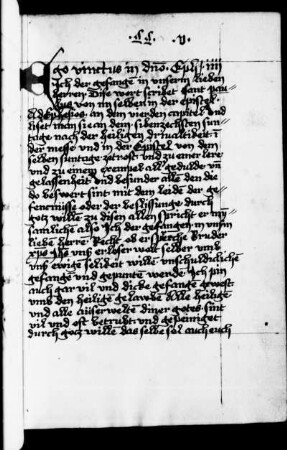 Ego vinctus in dno. Ephe. iiii
Ich der gefange in unserm lieben
herren Dise wort scribet sant pau
lus von im selben in der epistel
Ad Ephesios an dem vierden capitel und
liset man sie an dem sibenzechsten sun
tage nach der heiligen drivaltikeit i
der messe und in der Epistel von dem
selben suntage zetrost und zu einer lere
und zu einem exempel all gedulde un
gelassenheit und besunder allen den die
do beswert sint mit dem leide der ge
fencnisse oder der beslissunge durch
gotz wille zu disen allen spricht er my
samliche also Ich der gefangen in unserm
liebe herre Recht ob er spreche Bruder
xpus Jhs unser erloser wolt selber umb
unser ewige selikeit wille unschuldicliche
gefange und gepunte werde Ich pin
auch gar vil und dicke gefange gewest
umb den heilige gelawbe Alle heilige
und alle auserwelte diner gotes sint
vil und oft betrubt und gepeiniget
durch gotz wille das selbe sol auch euch